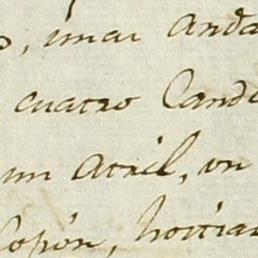 , unas Anda
cuatro Cande
un Atril, un
Copón, hostiar